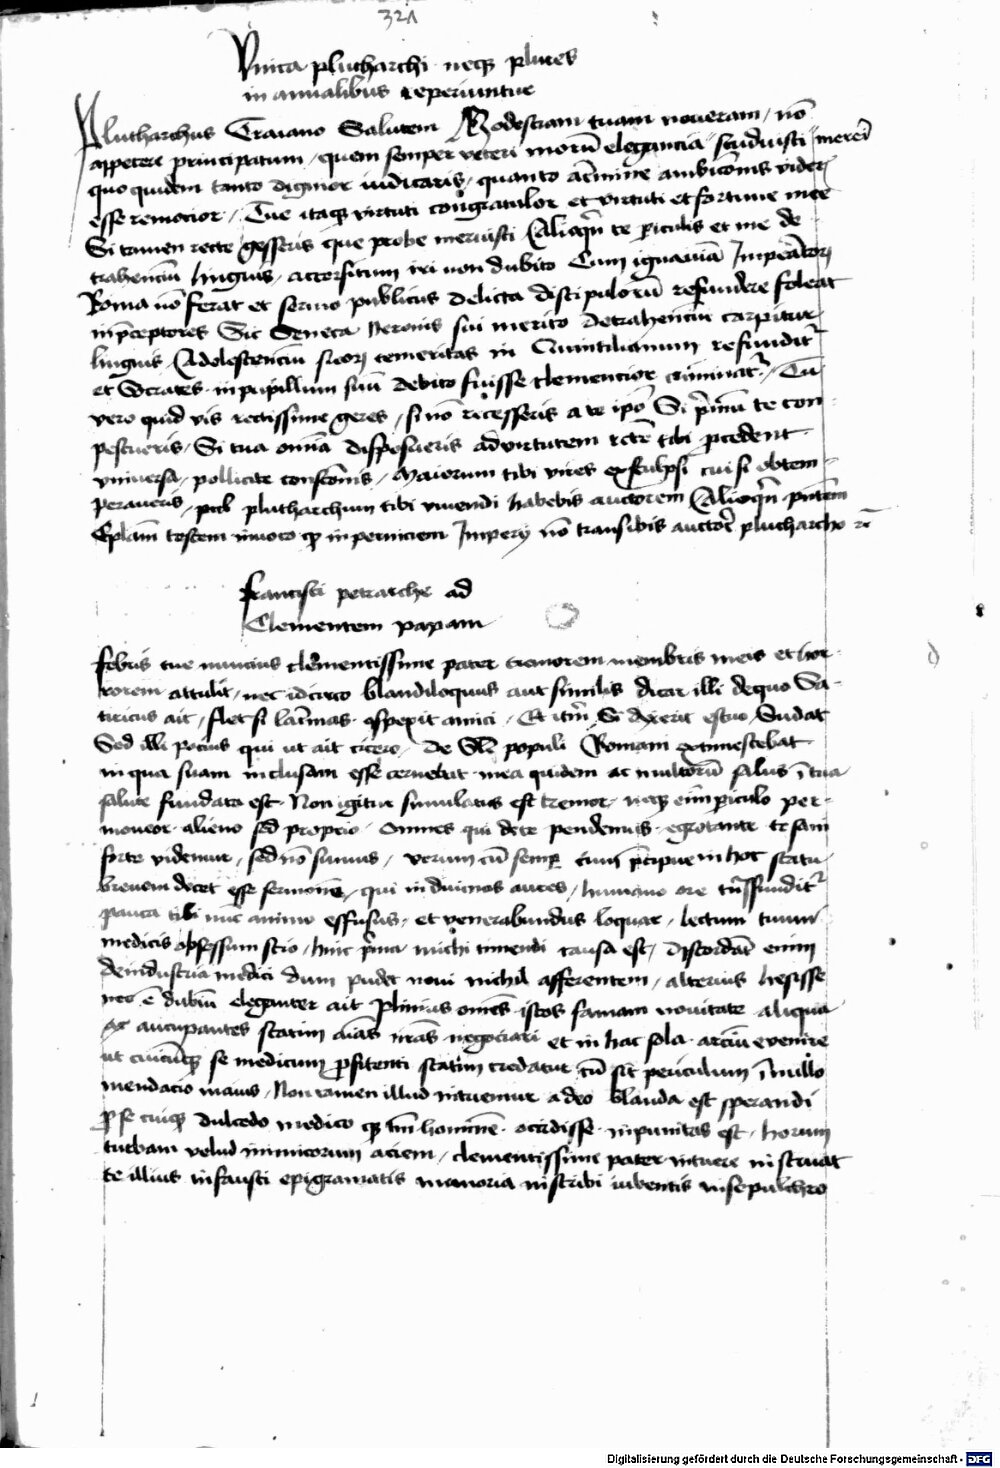 321
Unica plutharchi neqꝫ plures
in annalibus reperiuntur
Plutharchus Traiano Salutem Modestiam tuam noueram / nō
appetere principatum / quem semper veteri morū elegancia studuisti mererī
quo quidem tanto dignior iudicaris / quanto a crimine ambicōnis viderꝭ
esse remocior / Tue itaqꝫ virtuti congratulor et virtuti et fortune mee
Si tamen recte gesseris que probe meruisti Alioqn̄ te periculis et me de
trahenciū linguis / accersitum iri non dubito Cum ignauiā Imperatorꝫ
Roma nō ferat et sermo publicus delicta discipulorū refundere soleat
in p̄ceptores Sic Seneca Neronis sui merito detrahenciū carpitur
linguis Adolescenciū suorꝫ temeritas in Quintilianum refunditʳ
et Socrates in pupillum suū debito fuisse clemencior criminatʳ / Tu
vero quid vis rectissime geres / si nō recesseris a te ip̄o Si p̄mū te con
pescueris / Si tua omīa disposueris ad virtutem recte tibi p̄cedent
vniuersa / pollicite / Maiorum tibi vires exsculpsi cui si obtem
peraueris / plutharchum tibi viuendi habebis auctorem Alioqn̄ pn̄tem
Ep̄lam testem inuoco qꝫ in perniciem Imperij nō transibis auctore plutharcho
francisci petrarche ad
Clementem papam
Febris tue nuncius clementissime pater tremorem membris meis et hor
rorem attulit / nec idcirco blandiloquus aut similis dicar illi de quo Sa
tiricus ait / flet si lacrimas aspexit amici / Et itm̄ Si dixerit estuo Sudat
Sed illi pocius qui ut ait cicero / de populi Romani extimescebat
in qua suam inclusam esse cernebat mea quidem ac multorū salus ī tua
salute fundata est Non igitur simulatus est tremor / neqꝫ eniꝫ periculo per
moueor alieno sed proprio / Omnes qui de te pendemus egrotante te sani
forte videmur / sed nō sumus / verum cū semp tum p̄cipue in hoc statu
breuem decet esse sermonē / qui in diuinas aures / humano ore trāsfunditʳ
pauca tibi nūc animo effusus / et venerabundus loquar / lectum tuum
medicis obsessum scio / hinc prima michi timendi causa est / discordāt enim
de industria medici dum pudet noui nichil afferentem / alterius hesisse
nec ē dubiū eleganter ait plinius omēs istos famam nouitate aliqua
aucupantes statim aīas nr̄as negociari et in hac sola arciū euenire
ut cuicūqꝫ se medicum profitenti statim credatur cū sit periculum ī nullo
mendacio maius / Non tamen illud intuemur adeo blanda est sperandi
pro se cuiqꝫ dulcedo medico occidisse inpunitas est / horum
turbam velud inimicorum aciem / clementissime pater intuere instruat
te illius infausti epigramatis memoria inscribi iubentis in sepulchro
Digitalisierung gefördert durch die Deutsche Forschungsgemeinschaft - DFG